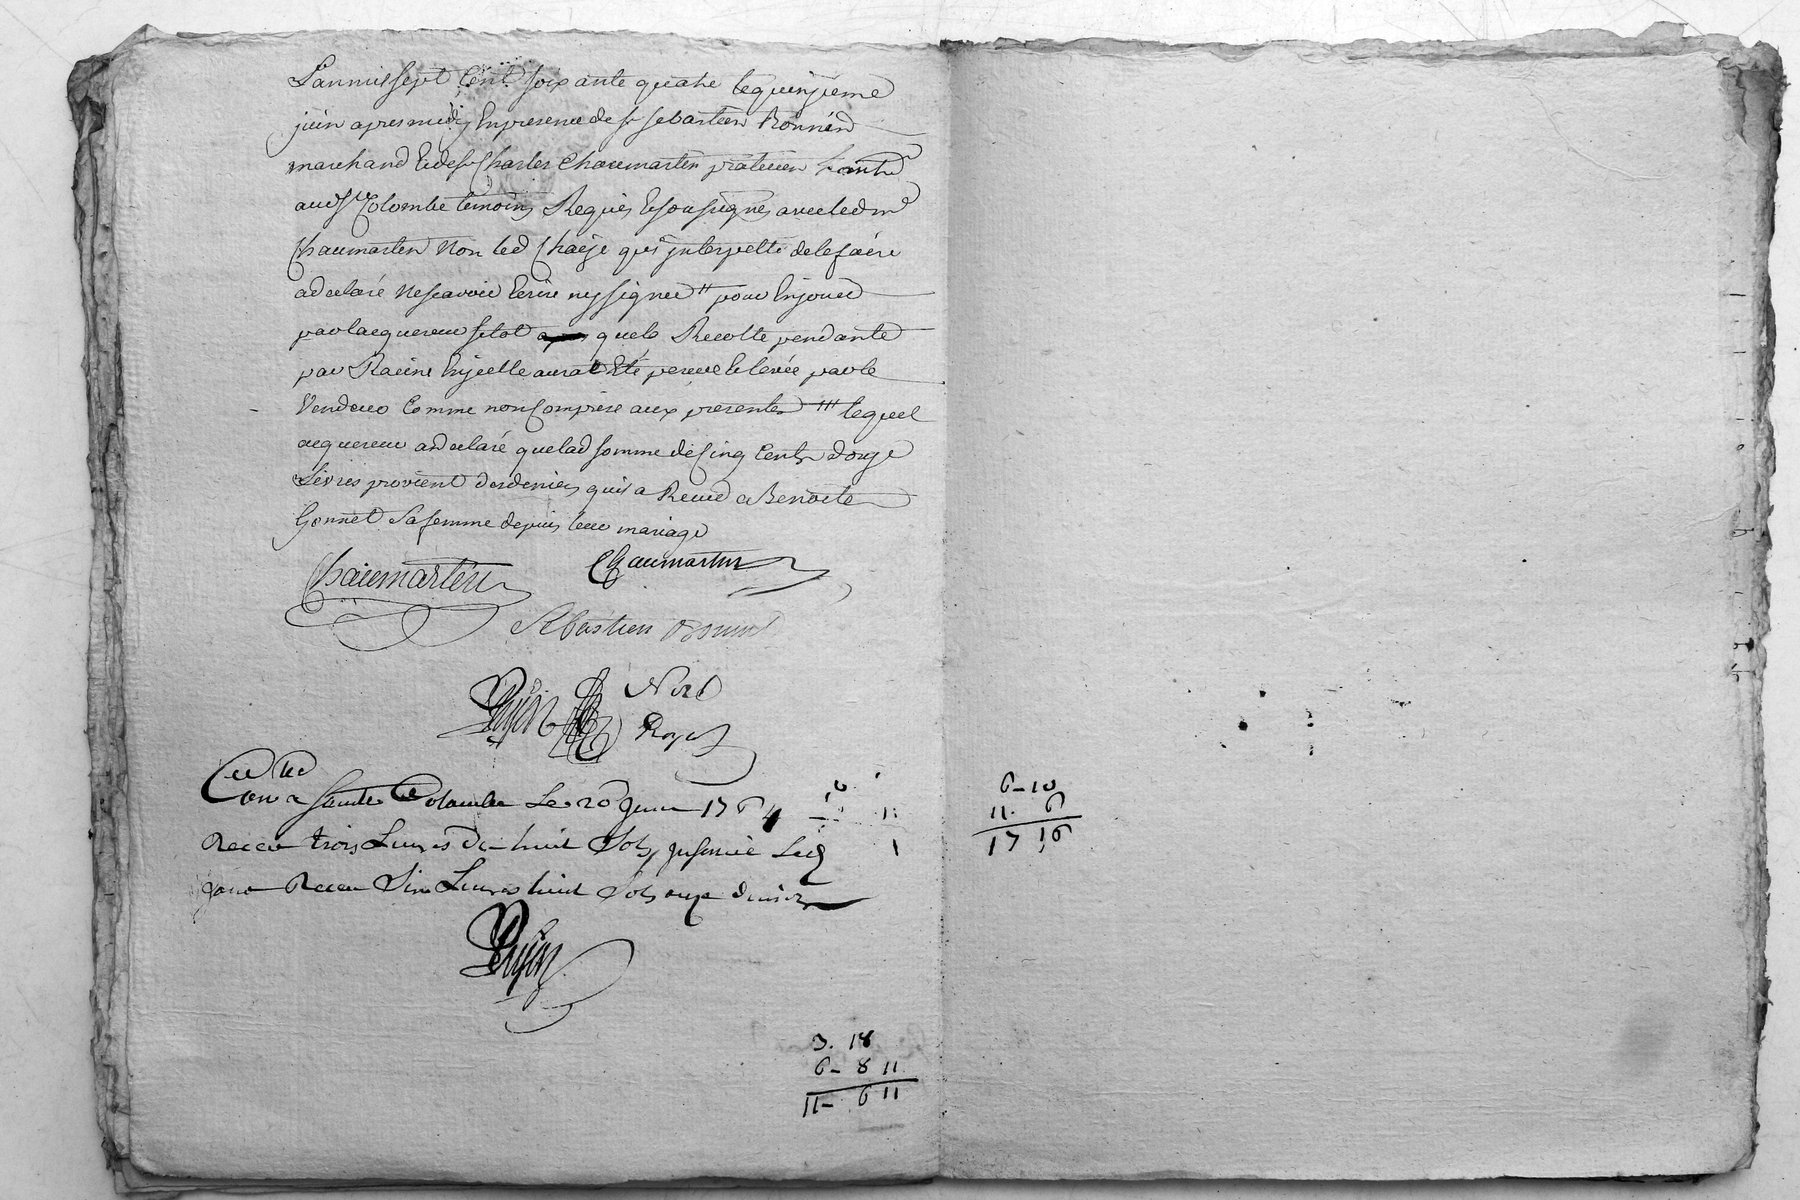 L'an mil sept cent soixante quatre le quinzieme
juin apres midy En presence de sr sebastien Bonnard
marchand Et de sr Charles Chaumartin praticien habitants
aud ste Colombe temoins Requis Et soussignés avec led sr
Chaumartin Non led Chaize qui interpellé de le faire
a declaré ne scavoir Ecrire ny signer " pour En jouir
par lacquereur sitot que la Recolte pendante
par Racine En icelle aura Eté perceue Et levée par le
Vendeur Comme non Comprise aux presentes ''' lequel
acquereur a declaré que lad somme de Cinq Cents
Livres provient des deniers quil a Receu de Benoite
Gonnet Sa femme depuis leur mariage
Chaumartin Chaumartin
Sebastien Bonnard
Nore
Royal
Conté a Sainte Colombe Le 20 juin 1764
Receu trois Livres Dix huit Sols
pour Receu Six Livres huit Sols onze deniers
3. 18
6 - 8 11
11 - 6 11
6 - 10
11. 6
17 16